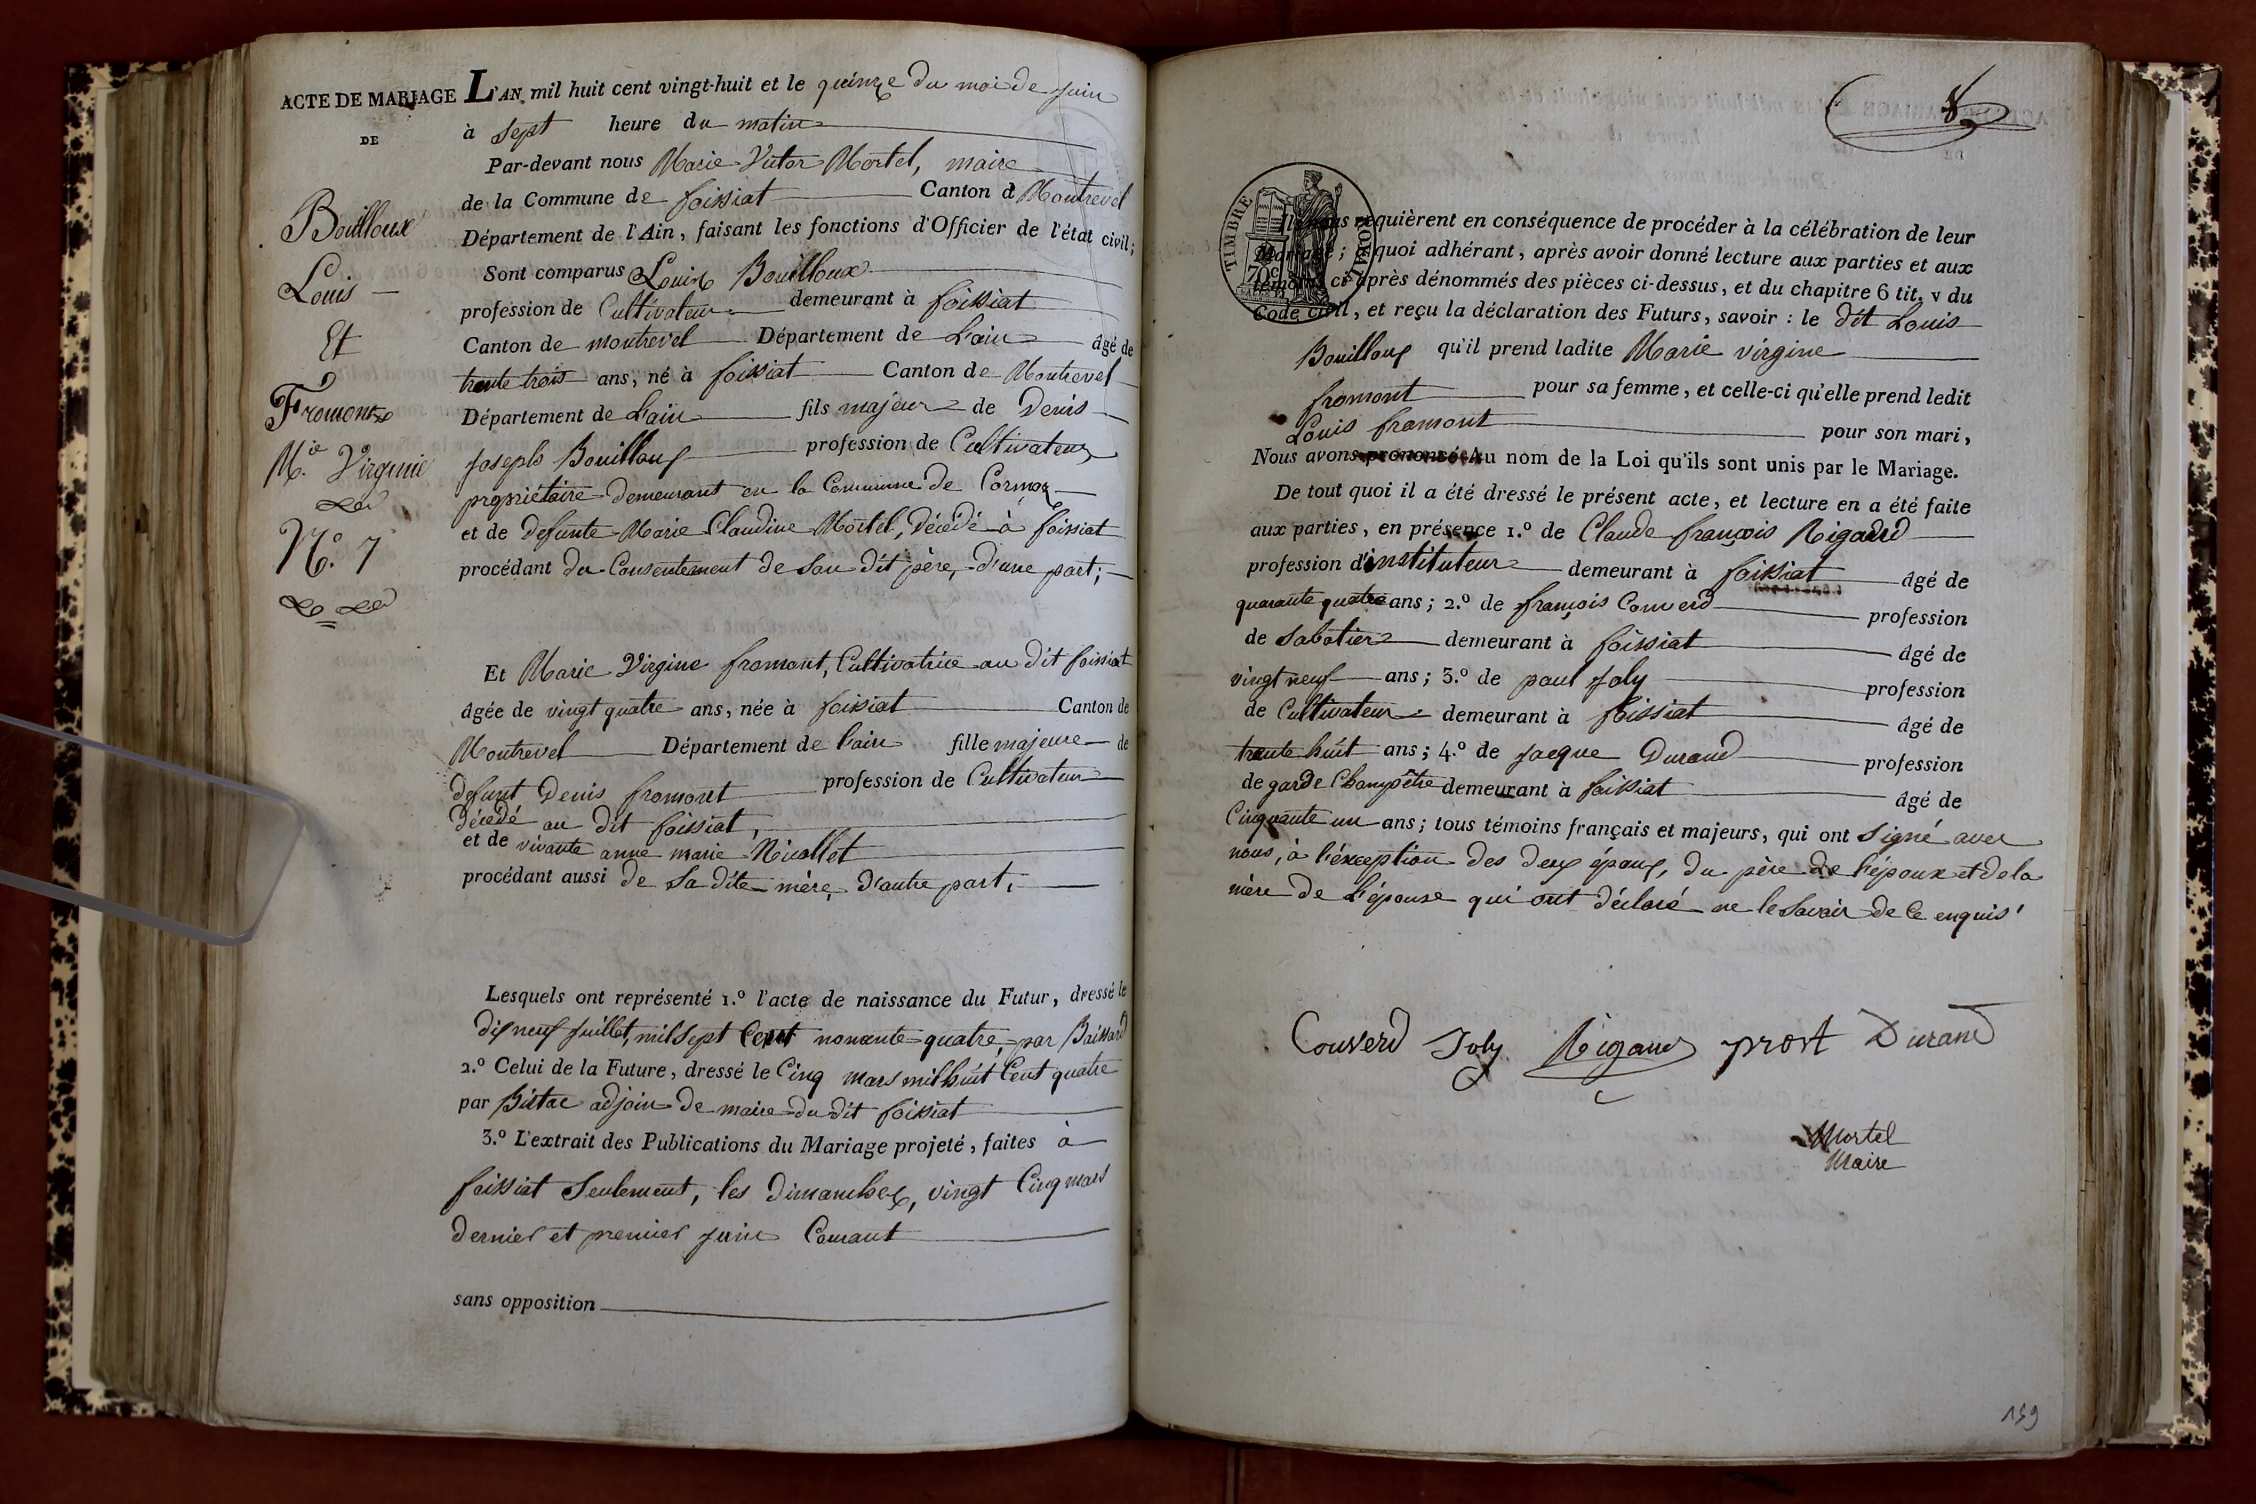 ACTE DE MARIAGE
DE
Bouilloux
Louis
Et
Fromont
M.ie Virginie
N.o 7
L'AN mil huit cent vingt-huit et le quinze du moi de juin
à sept heure du matin
Par-devant nous Marie Victor Mortel, maire
de la Commune de foissiat Canton d Montrevel
Département de l'Ain, faisant les fonctions d'Officier de l'état civil;
Sont comparus Louis Bouilloux
profession de Cultivateur demeurant à foissiat
Canton de montrevel Département de L'ain âgé de
trente trois ans, né à foissiat Canton de Montrevel
Département de L'ain fils majeur de Denis
joseph Bouilloux profession de Cultivateur
propriétaire demeurant en la Commune de Cormoz
et de defunte Marie Claudine Mortel, décédé à foissiat
procédant du Consentement de Son dit père, d'une part;
Et Marie Virgine fromont, Cultivatrice au dit foissiat
âgée de vingt quatre ans, née à foissiat Canton de
Montrevel Département de L'ain fille majeure de
defunt Denis fromont profession de Cultivateur
Décédé au dit foissiat,
et de vivante anne marie Nicollet
procédant aussi de Sa dite mère, D'autre part,
Lesquels ont représenté 1.o l'acte de naissance du Futur, dressé le
dix neuf juillet, mil Sept Cent nonante quatre, par
2.o Celui de la Future, dressé le Cinq mars mil huit Cent quatre
par adjoin de maire du dit foissiat
3.o L'extrait des Publications du Mariage projeté, faites à
foissiat Seulement, les dimanches, vingt Cinq mars
dernier et premier juin Courant
sans opposition
8
TIMBRE ROYAL
70c
Ils nous requièrent en conséquence de procéder à la célébration de leur
Mariage; à quoi adhérant, après avoir donné lecture aux parties et aux
témoins ci-après dénommés des pièces ci-dessus, et du chapitre 6 tit. v du
Code civil, et reçu la déclaration des Futurs, savoir: le dit Louis
Bouilloux qu'il prend ladite Marie virgine
fromont pour sa femme, et celle-ci qu'elle prend ledit
Louis fromont pour son mari,
Nous avons prononcé Au nom de la Loi qu'ils sont unis par le Mariage.
De tout quoi il a été dressé le présent acte, et lecture en a été faite
aux parties, en présence 1.o de Claude françois Rigaud
profession d'instituteur demeurant à foissiat âgé de
quarante quatre ans; 2.o de françois Converd profession
de Sabotier demeurant à foissiat âgé de
vingt neuf ans; 3.o de paul joly profession
de Cultivateur demeurant à foissiat âgé de
trente huit ans; 4.o de jacque Durand profession
de garde Champêtre demeurant à foissiat âgé de
Cinquante un ans; tous témoins français et majeurs, qui ont Signé avec
nous, à l'éxception des deux époux, du père de l'époux et de la
mère de L'épouse qui ont déclaré ne le Savoir de Ce enquis
Converd Joly Rigaud prost Durand
Mortel
Maire
159